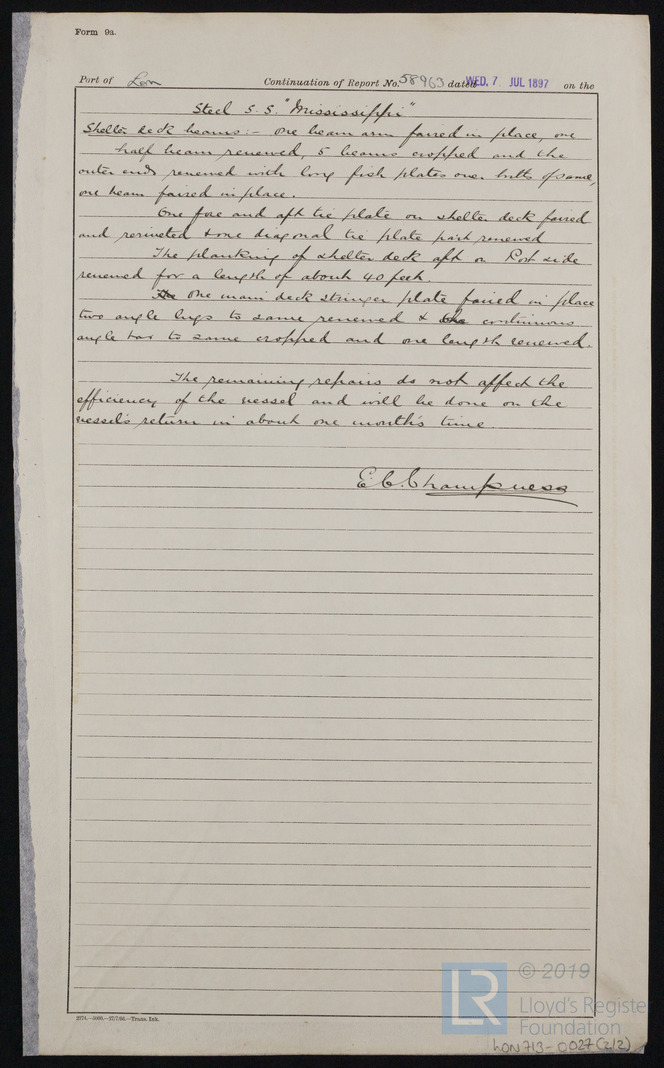 Form 9a.
Port of Lon Continuation of Report No. 58963 dated WED. 7 JUL 1897 on the
Steel S.S. "Mississippi"
Shelter deck beams:- One beam arm faired in place, one
half beam renewed, 5 beams cropped and the
outer ends renewed with long fish plates over butts of same,
one beam faired in place.
One fore and aft tie plate on shelter deck faired
and reriveted & one diagonal tie plate part renewed
The planking of shelter deck aft on Port side
renewed for a length of about 40 feet.
The One main deck stringer plate faired in place
two angle lugs to same renewed & the continuous
angle bar to same cropped and one length renewed.
The remaining repairs do not affect the
efficiency of the vessel and will be done on the
vessel's return in about one month's time.
E. C. Champness
2274.—5000.—27/7/96.—Trans. Ink.
LR © 2019
Lloyd's Register
Foundation
LON713-0027(2/2)